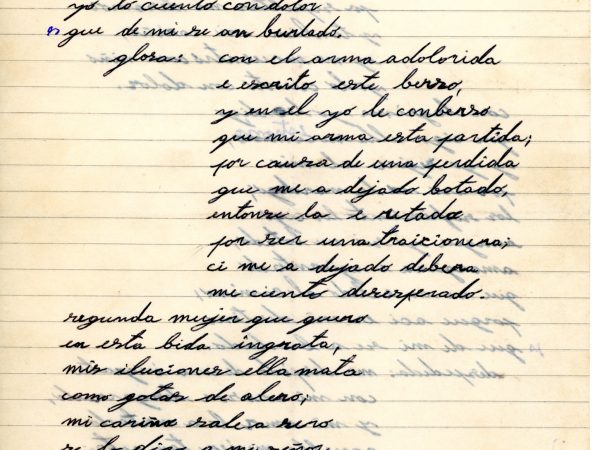 yo lo cuento con dolor
es que de mi se an burlado.
glosa: con el arma adolorida
e escrito este berso,
y en el yo le conberso
que mi arma esta partida;
por causa de una perdida
que me a dejado botado,
entonse la e retado
por ser una traicionera;
ci me a dejado debera
me ciento desesperado.
segunda mujer que quero
en esta bida ingrata,
mis iluciones ella mata
como gotas de alero;
mi cariño sale a sero
se lo digo a mi señor